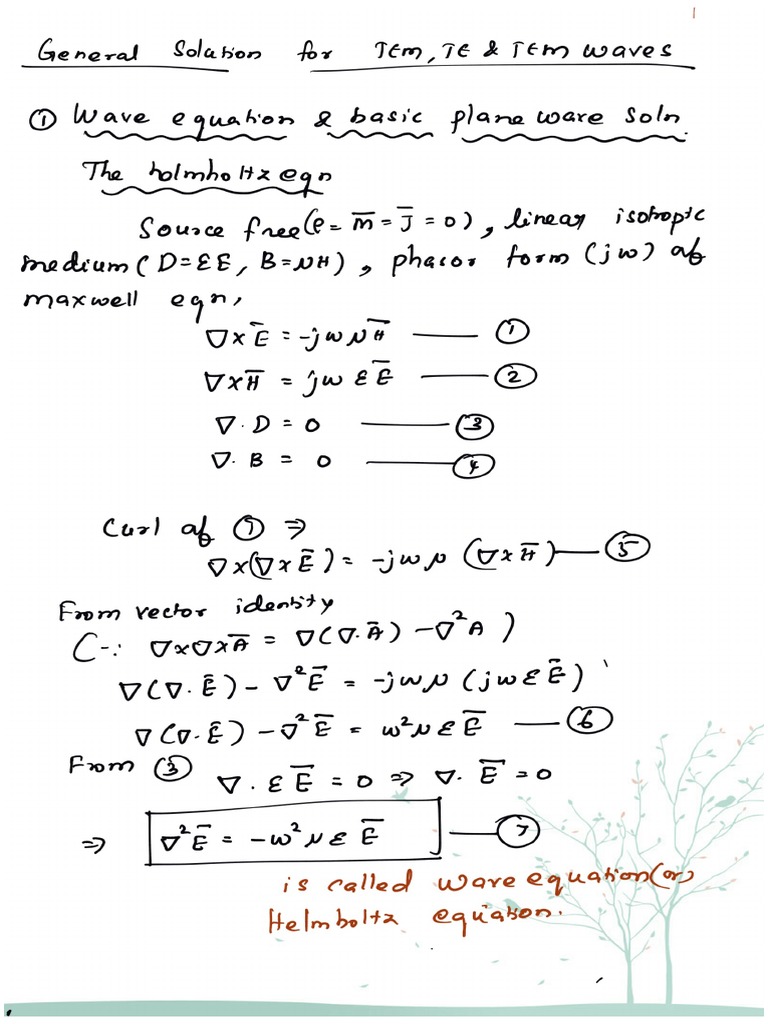 1
General Solution for TEM, TE & TEM waves
① Wave equation & basic plane wave soln.
The holmholtz eqn
Source free (ρ = m̅ = J̅ = 0), linear isotropic
medium (D=εE, B=μH), phasor form (jω) of
maxwell eqn,
∇×E̅ = -jωμH̅ —— ①
∇×H̅ = jωεE̅ —— ②
∇·D = 0 —— ③
∇·B = 0 —— ④
Curl of ① ⇒
∇×(∇×E̅) = -jωμ (∇×H̅) —— ⑤
From vector identity
(∵ ∇×∇×A̅ = ∇(∇·A̅) - ∇²A)
∇(∇·E̅) - ∇²E̅ = -jωμ (jωεE̅)
∇(∇·E̅) - ∇²E̅ = ω²μεE̅ —— ⑥
From ③ ∇·εE̅ = 0 ⇒ ∇·E̅ = 0
⇒ ∇²E̅ = -ω²με E̅ —— ⑦
is called wave equation (or)
Helmholtz equation.